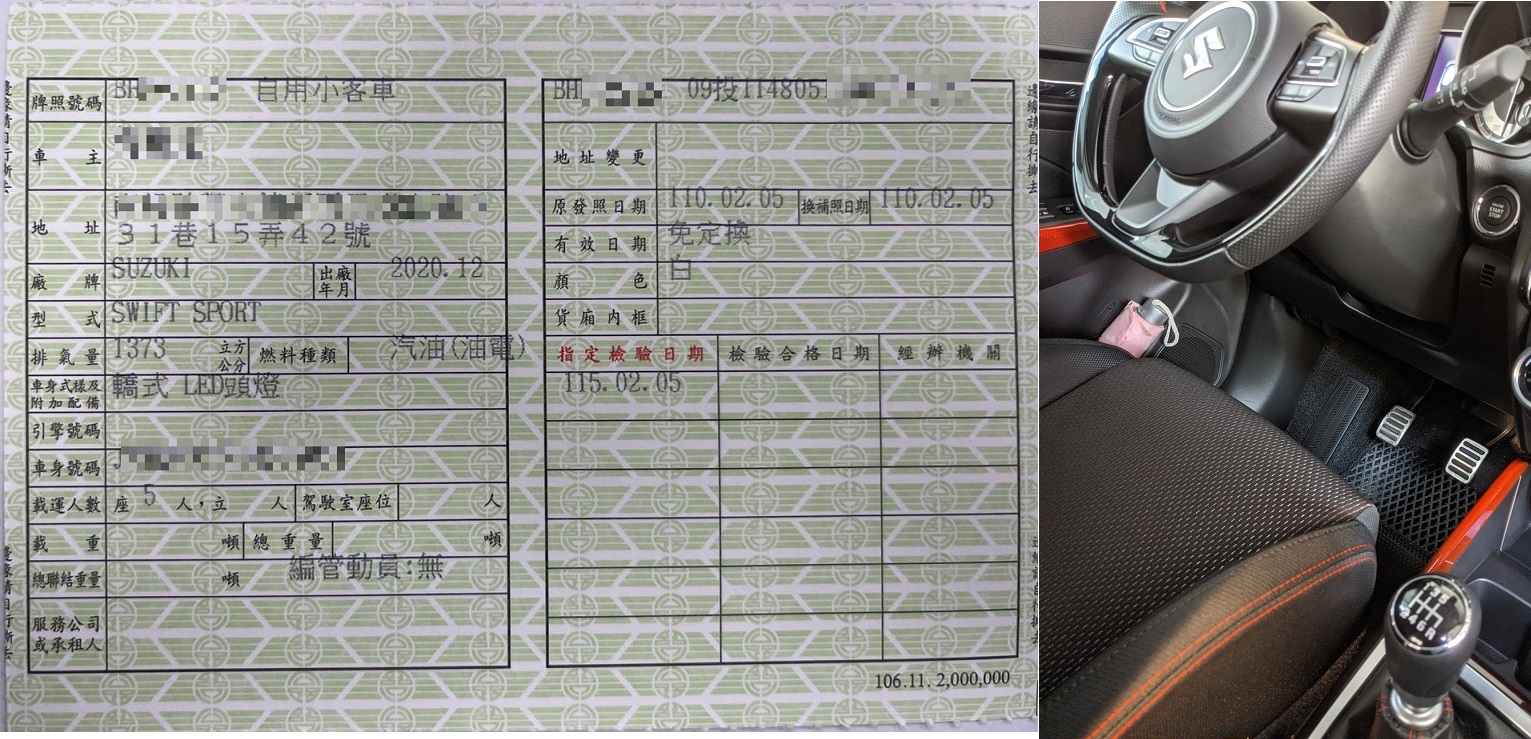 牌照號碼 BH 自用小客車
車主
地址
31巷15弄42號
廠牌 SUZUKI 出廠年月 2020.12
型式 SWIFT SPORT
排氣量 1373 立方公分 燃料種類 汽油(油電)
車身式樣及附加配備 轎式 LED頭燈
引擎號碼
車身號碼
載運人數 座 5 人,立 人 駕駛室座位 人
載重 噸 總重量 噸
總聯結重量 噸 編管動員:無
服務公司或承租人
BH 09投114805
地址變更
原發照日期 110.02.05 換補照日期 110.02.05
有效日期 免定換
顏色 白
貨廂內框
指定檢驗日期 檢驗合格日期 經辦機關
115.02.05
106.11. 2,000,000
邊緣請自行撕去
ENGINE
START
STOP
1 3 5
2 4 6 R